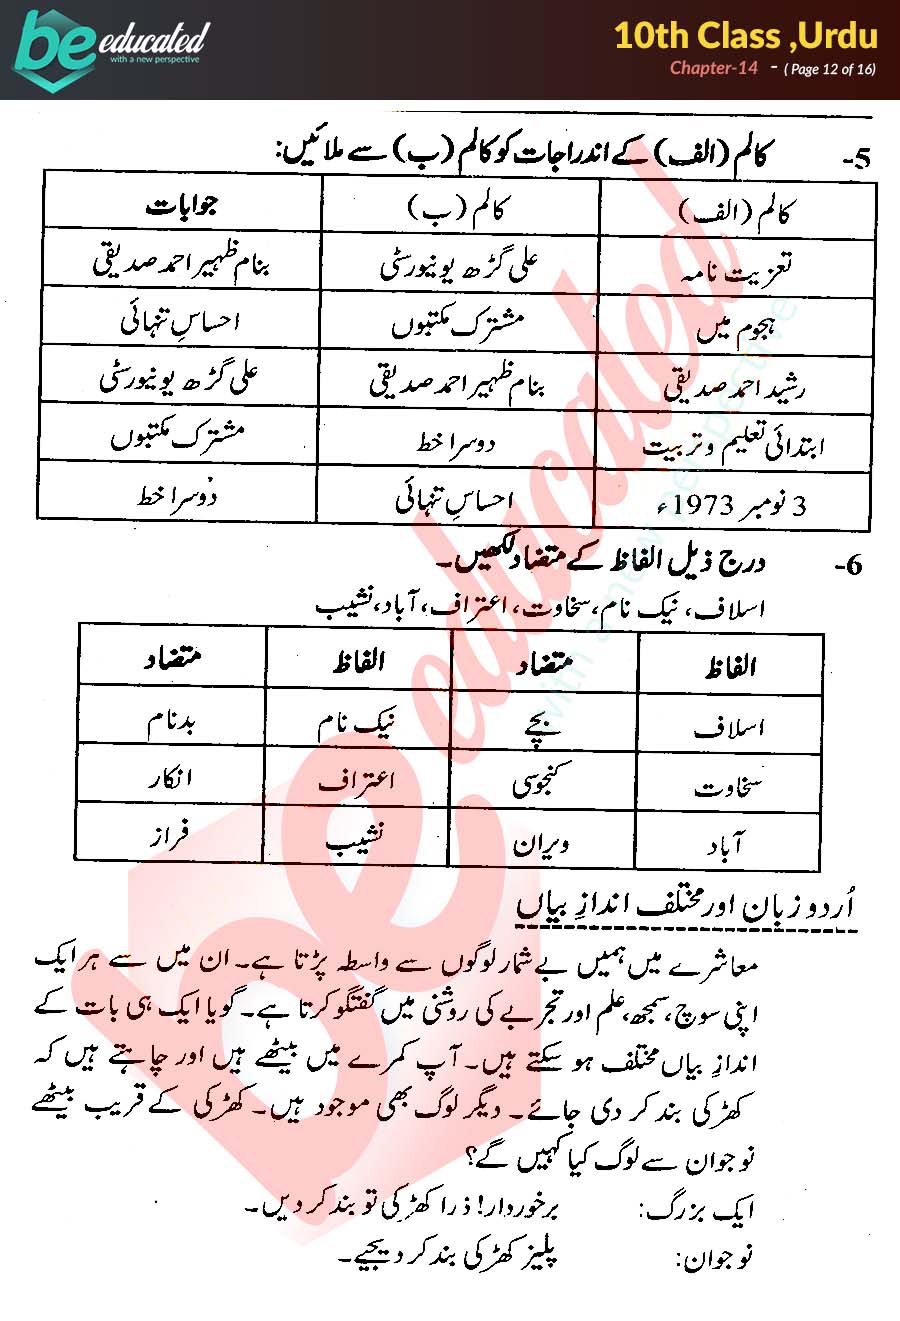 be educated
with a new perspective
10th Class ,Urdu
Chapter-14 - ( Page 12 of 16)
5- کالم (الف) کے اندراجات کو کالم (ب) سے ملائیں:
کالم (الف) کالم (ب) جوابات
تعزیت نامہ علی گڑھ یونیورسٹی بنام ظہیر احمد صدیقی
ہجوم میں مشترک مکتبوں احساسِ تنہائی
رشید احمد صدیقی بنام ظہیر احمد صدیقی علی گڑھ یونیورسٹی
ابتدائی تعلیم و تربیت دوسرا خط مشترک مکتبوں
3 نومبر 1973ء احساسِ تنہائی دوسرا خط
6- درج ذیل الفاظ کے متضاد لکھیں۔
اسلاف، نیک نام، سخاوت، اعتراف، آباد، نشیب
الفاظ متضاد الفاظ متضاد
اسلاف بچے نیک نام بدنام
سخاوت کنجوسی اعتراف انکار
آباد ویران نشیب فراز
اُردو زبان اور مختلف اندازِ بیاں
معاشرے میں ہمیں بے شمار لوگوں سے واسطہ پڑتا ہے۔ ان میں سے ہر ایک
اپنی سوچ، سمجھ، علم اور تجربے کی روشنی میں گفتگو کرتا ہے۔ گویا ایک ہی بات کے
اندازِ بیاں مختلف ہو سکتے ہیں۔ آپ کمرے میں بیٹھے ہیں اور چاہتے ہیں کہ
کھڑکی بند کر دی جائے۔ دیگر لوگ بھی موجود ہیں۔ کھڑکی کے قریب بیٹھے
نوجوان سے لوگ کیا کہیں گے؟
ایک بزرگ: برخوردار! ذرا کھڑکی تو بند کر دیں۔
نوجوان: پلیز کھڑکی بند کر دیجیے۔
be educated
with a new perspective